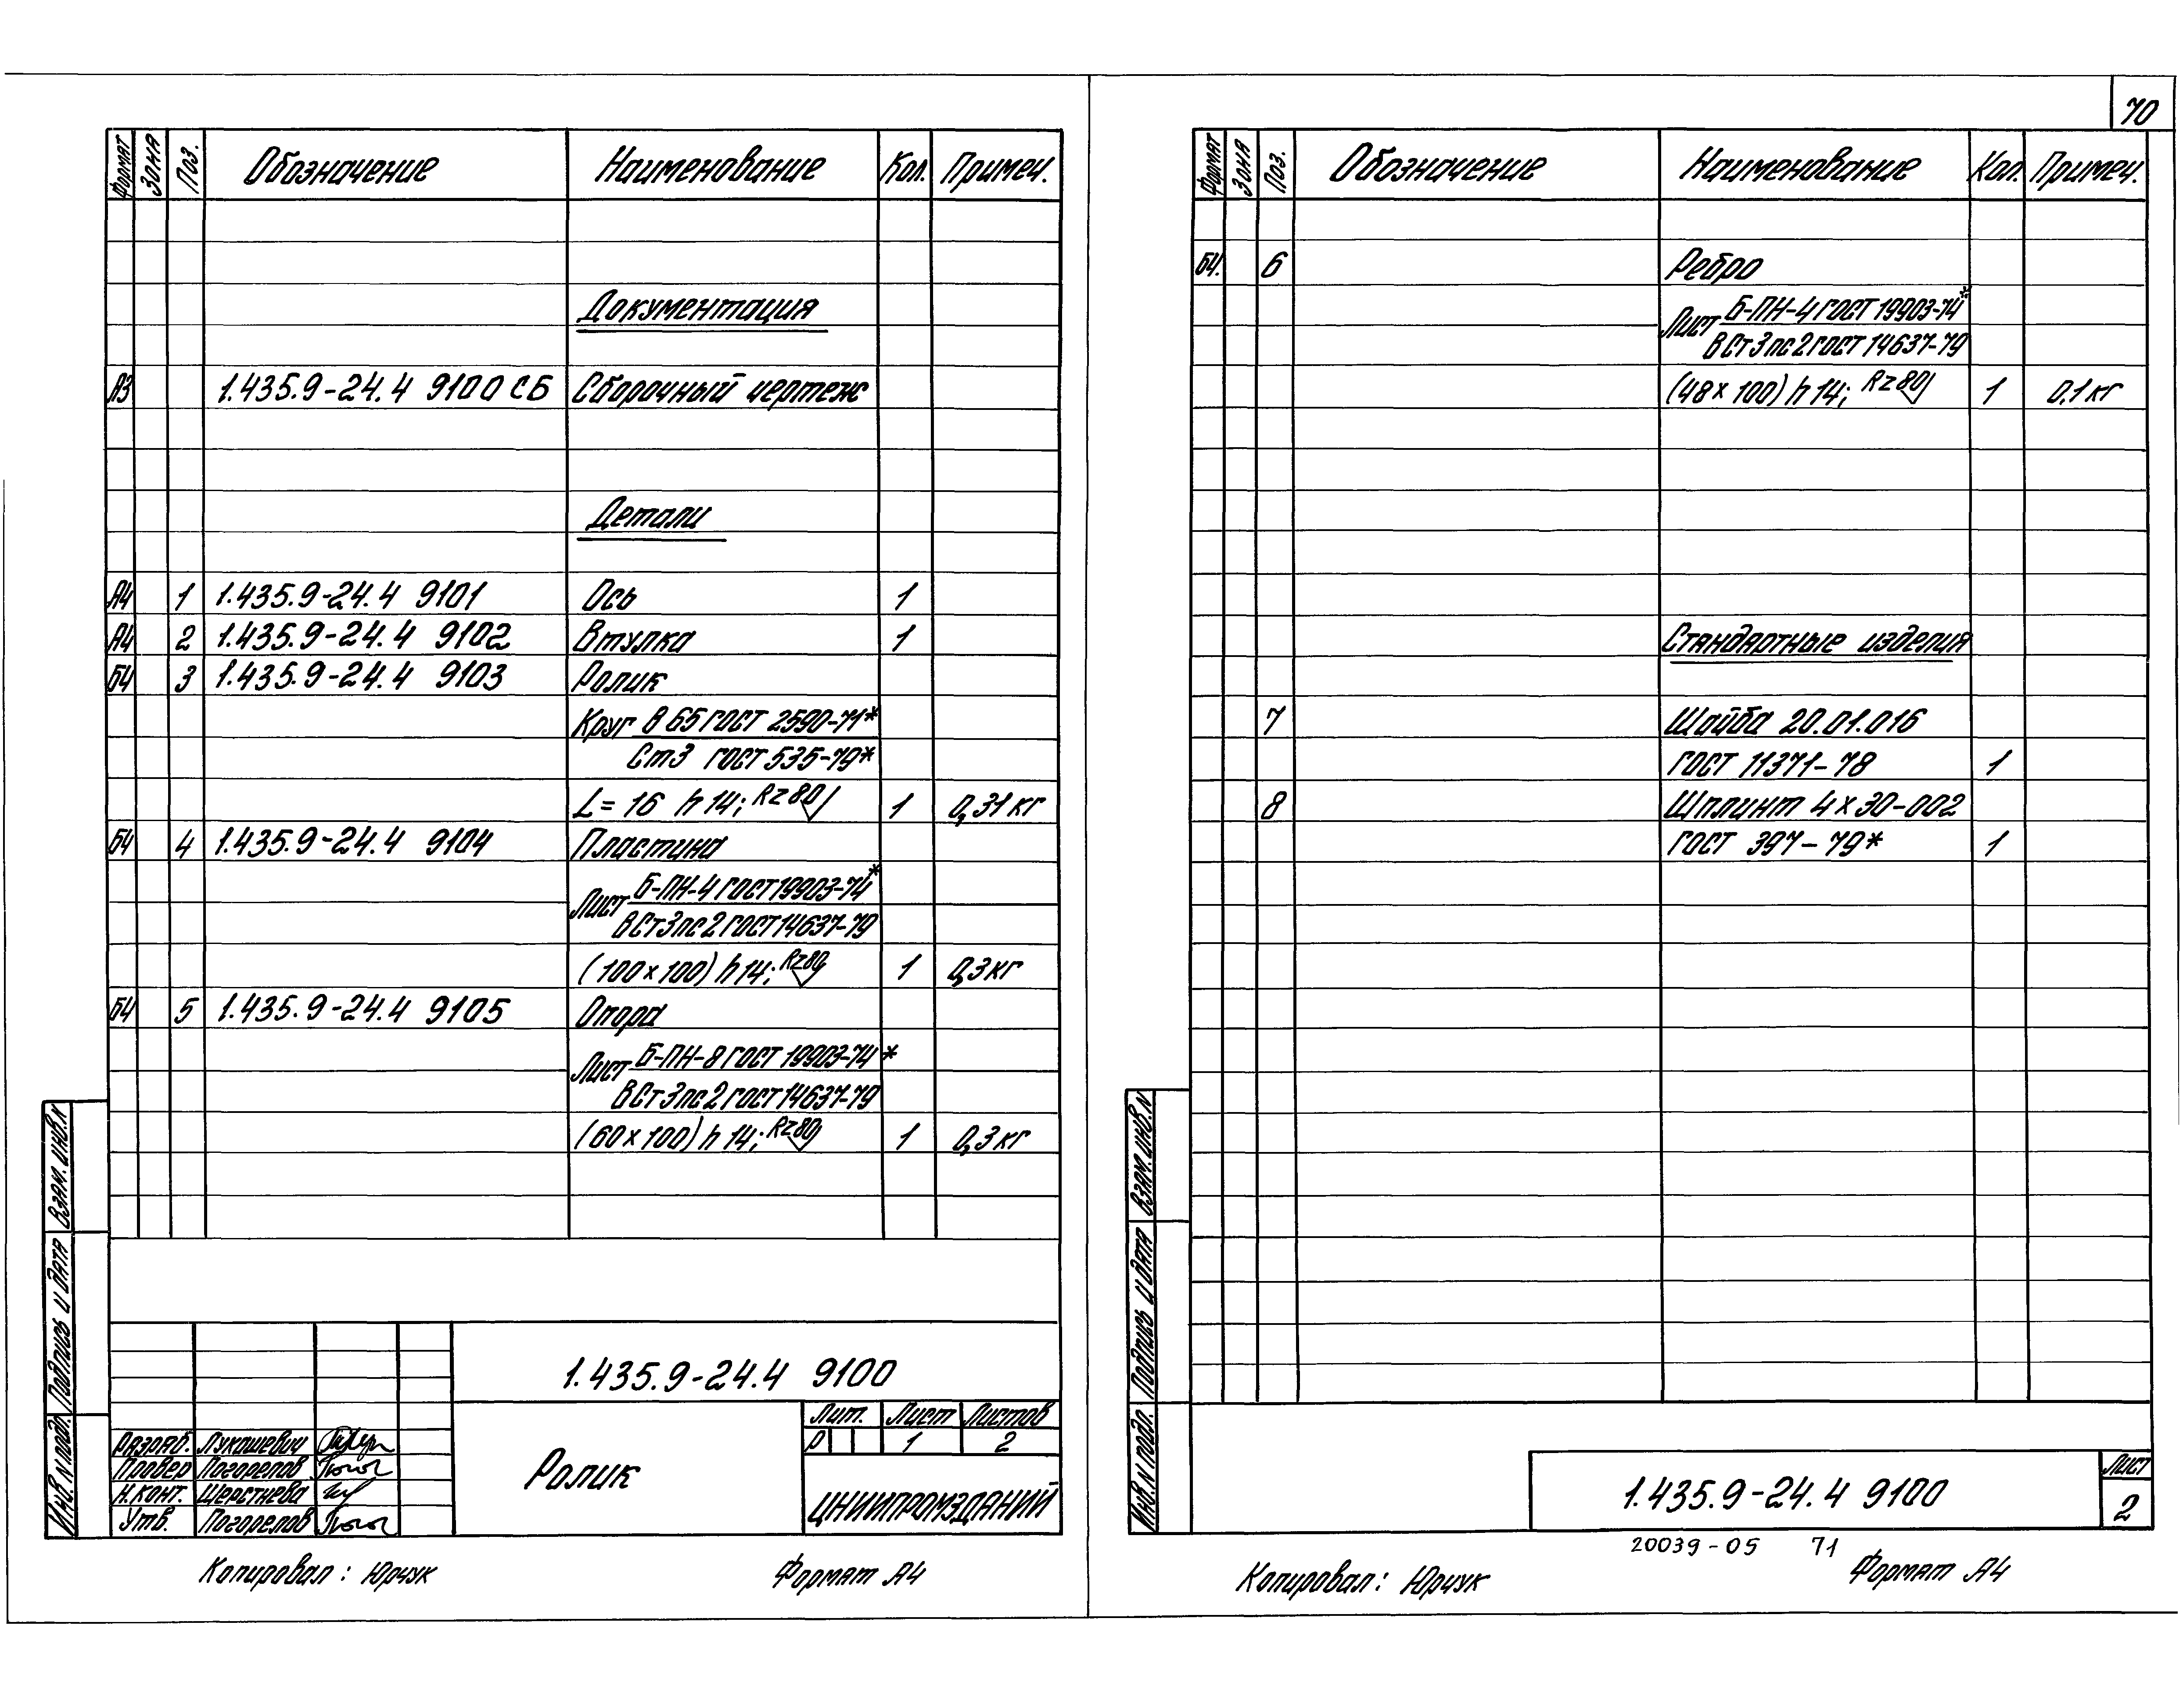 70
Формат Зона Поз. Обозначение Наименование Кол. Примеч.
Документация
А3 1.435.9-24.4 9100 СБ Сборочный чертеж
Детали
А4 1 1.435.9-24.4 9101 Ось 1
А4 2 1.435.9-24.4 9102 Втулка 1
Б4 3 1.435.9-24.4 9103 Ролик
Круг В 65 ГОСТ 2590-71*
Ст3 ГОСТ 535-79*
L=16 h14; Rz80 1 0,31 кг
Б4 4 1.435.9-24.4 9104 Пластина
Лист Б-ПН-4 ГОСТ 19903-74*
ВСт3пс2 ГОСТ 14637-79
(100×100) h14; Rz80 1 0,3 кг
Б4 5 1.435.9-24.4 9105 Опора
Лист Б-ПН-8 ГОСТ 19903-74*
ВСт3пс2 ГОСТ 14637-79
(60×100) h14; Rz80 1 0,3 кг
Взам. инв. N
Подпись и дата
Инв. N подл.
1.435.9-24.4 9100
Разраб. Лукашевич
Провер Погорелов
Н.конт. Шерстнева
Утв. Погорелов
Ролик
Лит. Лист Листов
Р 1 2
ЦНИИПРОМЗДАНИЙ
Копировал: Юрчук Формат А4
Формат Зона Поз. Обозначение Наименование Кол. Примеч.
Б4. 6 Ребро
Лист Б-ПН-4 ГОСТ 19903-74*
ВСт3пс2 ГОСТ 14637-79
(48×100) h14; Rz80 1 0,1 кг
Стандартные изделия
7 Шайба 20.01.016
ГОСТ 11371-78 1
8 Шплинт 4×30-002
ГОСТ 397-79* 1
Взам. инв. N
Подпись и дата
Инв. N подл.
1.435.9-24.4 9100
Лист
2
20039-05 71
Копировал: Юрчук Формат А4